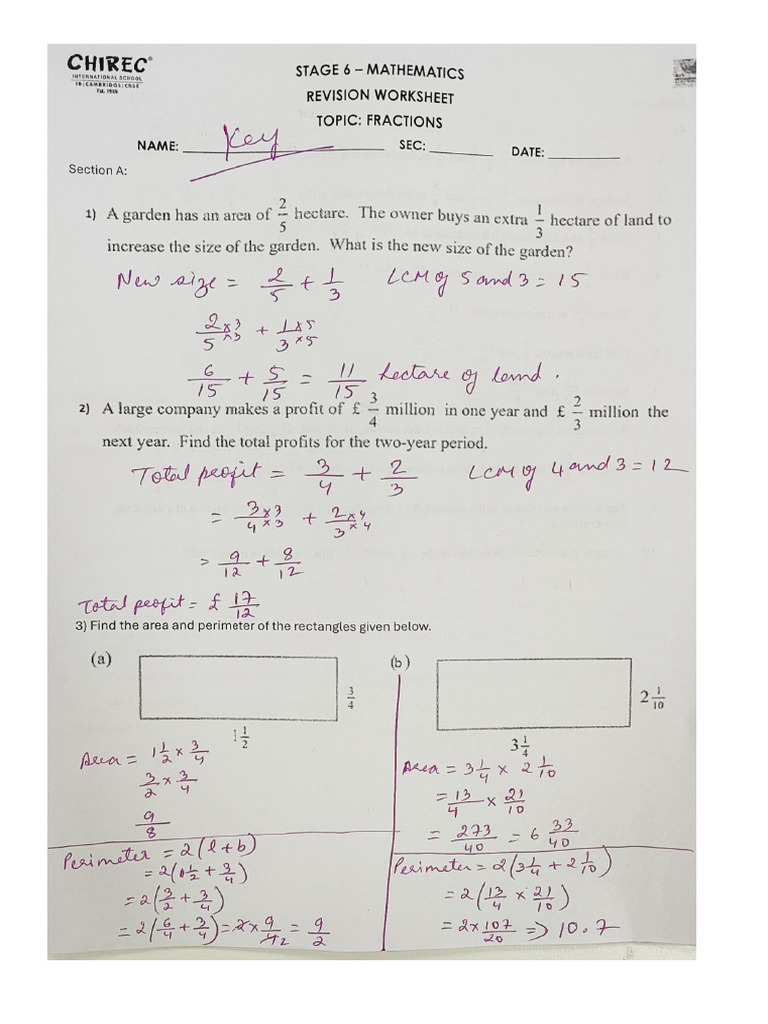 CHIREC
INTERNATIONAL SCHOOL
IB | CAMBRIDGE | CBSE
Est. 1989
STAGE 6 – MATHEMATICS
REVISION WORKSHEET
TOPIC: FRACTIONS
NAME: Key SEC: DATE:
Section A:
1) A garden has an area of 2/5 hectare. The owner buys an extra 1/3 hectare of land to
increase the size of the garden. What is the new size of the garden?
New size = 2/5 + 1/3 LCM of 5 and 3 = 15
2×3/5×3 + 1×5/3×5
6/15 + 5/15 = 11/15 hectare of land.
2) A large company makes a profit of £ 3/4 million in one year and £ 2/3 million the
next year. Find the total profits for the two-year period.
Total profit = 3/4 + 2/3 LCM of 4 and 3 = 12
= 3×3/4×3 + 2×4/3×4
= 9/12 + 8/12
Total profit = £ 17/12
3) Find the area and perimeter of the rectangles given below.
(a)
3/4
1 1/2
Area = 1 1/2 × 3/4
3/2 × 3/4
9/8
Perimeter = 2(l+b)
= 2(1 1/2 + 3/4)
= 2(3/2 + 3/4)
= 2(6/4 + 3/4) = 2×9/4 2 = 9/2
(b)
2 1/10
3 1/4
Area = 3 1/4 × 2 1/10
= 13/4 × 21/10
= 273/40 = 6 33/40
Perimeter = 2(3 1/4 + 2 1/10)
= 2(13/4 × 21/10)
= 2×107/20 => 10.7